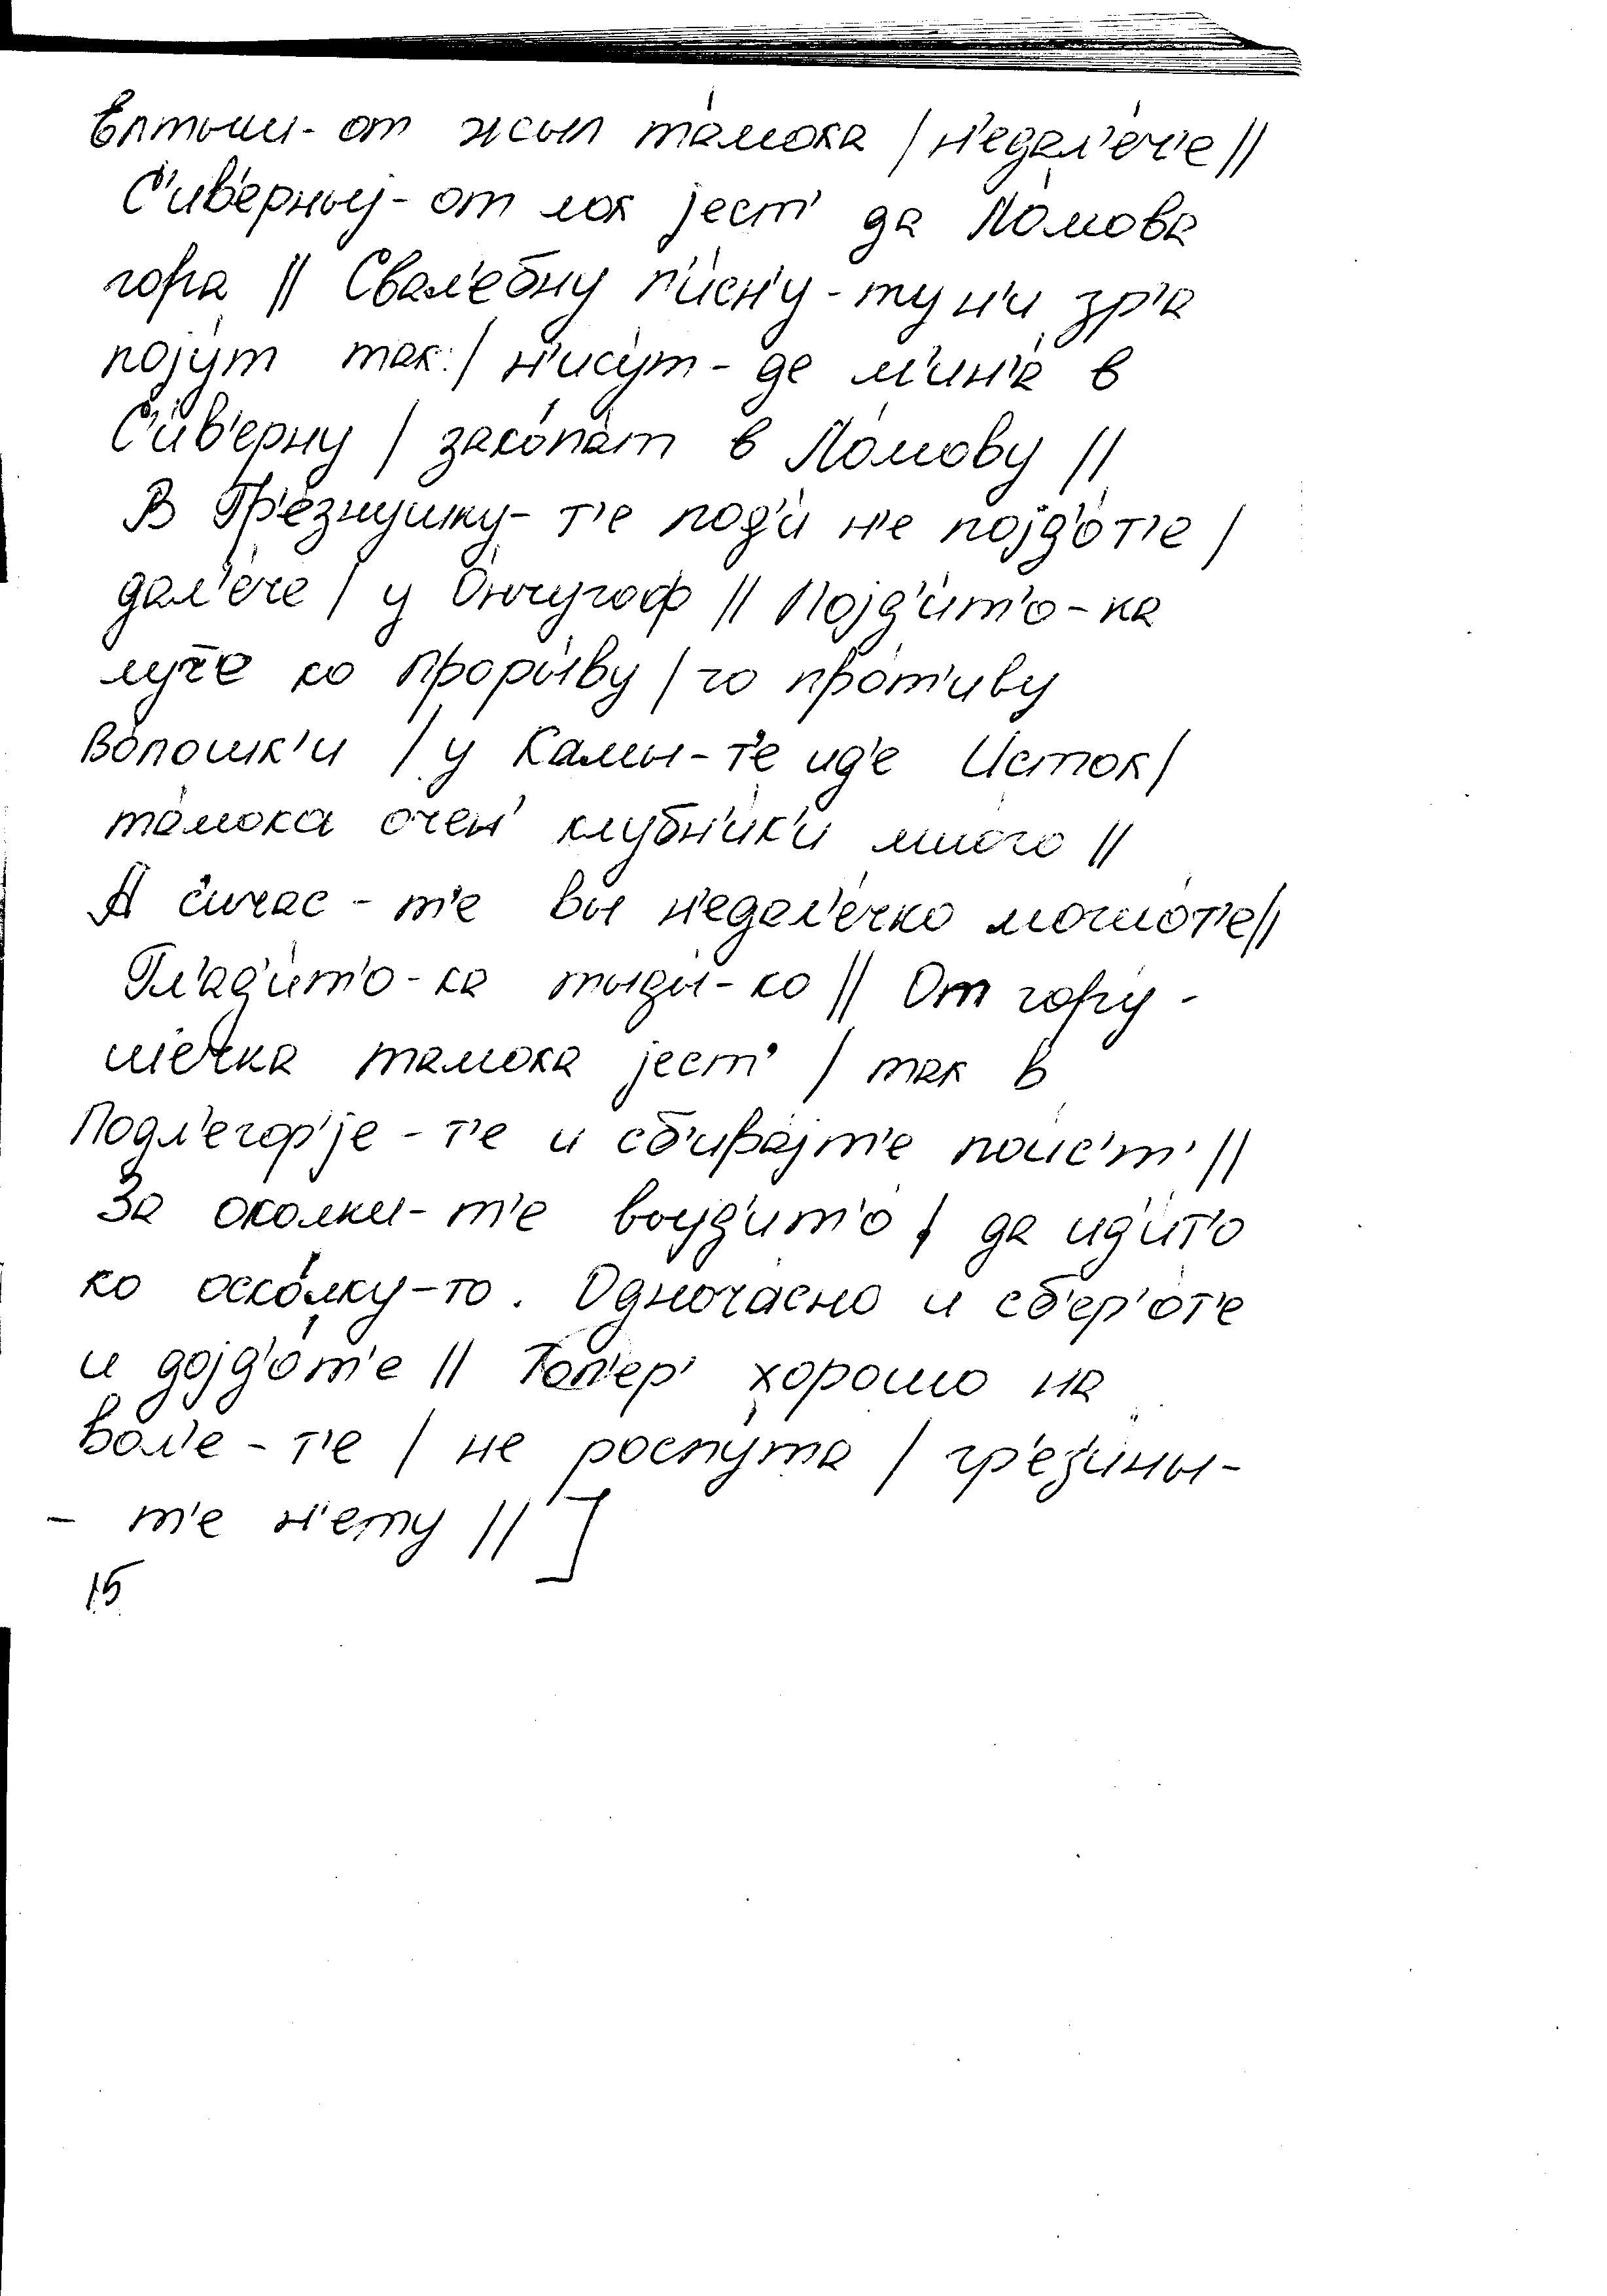 Елтыш-от жыл та́мока / н'едал'е́ч'е //
С'и́в'ерныј-от лог јест' да Ло́мова
гора // Свал'ебну п'и́сн'у-ту н'и зр'а
појут так: / н'ису́т-де м'ин'а́ в
С'и́в'ерну / зако́па́т в Ло́мову //
В Гр'е́знушку-т'е под'и́ н'е појд'о́т'е /
дал'е́че / у Ончугоф // Појд'и́т'о-ка
лу́че ко проры́ву / чо про́т'иву
Во́лошк'и / у Камы-т'е ид'е Исток /
та́мока очен' клубн'и́к'и много //
А с'ичас-т'е вы н'едал'е́чко мошо́т'е //
Гл'ад'и́т'о-ка тыды́-ко // От гору́-
шечка тамока јест' / так в
Подл'егор'је-т'е и сб'ира́јт'е поис'т' //
За околки-т'е выјд'ит'о / да ид'и́т'о
ко оско́лку-то. Одноча́сно и сб'ер'о́т'е
и дојд'о́т'е // Топ'ер' хорошо на
вол'е-т'е / не роспу́та / гр'ез'ины-
- т'е н'ету // ]
15